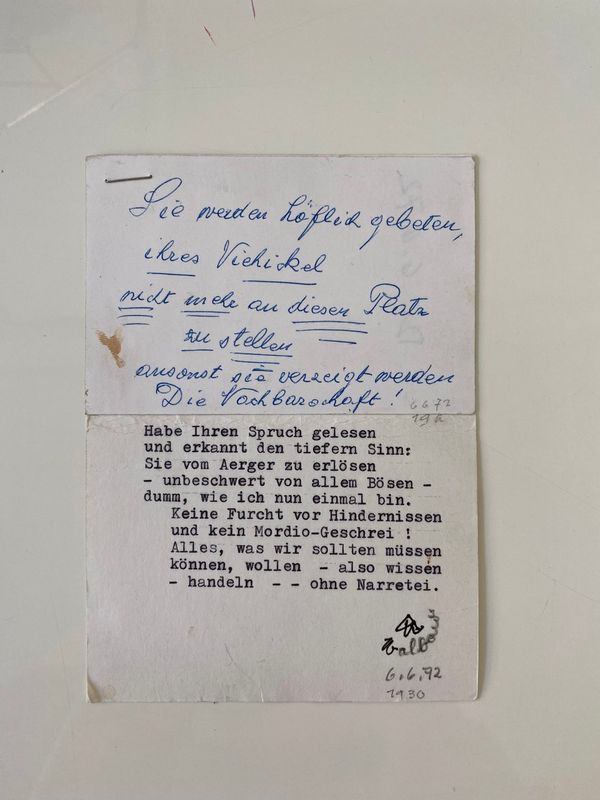 Sie werden höflich gebeten,
ihres Vichickel
nicht mehr an diesen Platz
zu stellen
ansonst sie verzeigt werden
Die Nachbarschaft!
Habe Ihren Spruch gelesen
und erkannt den tiefern Sinn:
Sie vom Aerger zu erlösen
- unbeschwert von allem Bösen -
dumm, wie ich nun einmal bin.
Keine Furcht vor Hindernissen
und kein Mordio-Geschrei !
Alles, was wir sollten müssen
können, wollen - also wissen
- handeln - - ohne Narretei.
6.6.92
1930